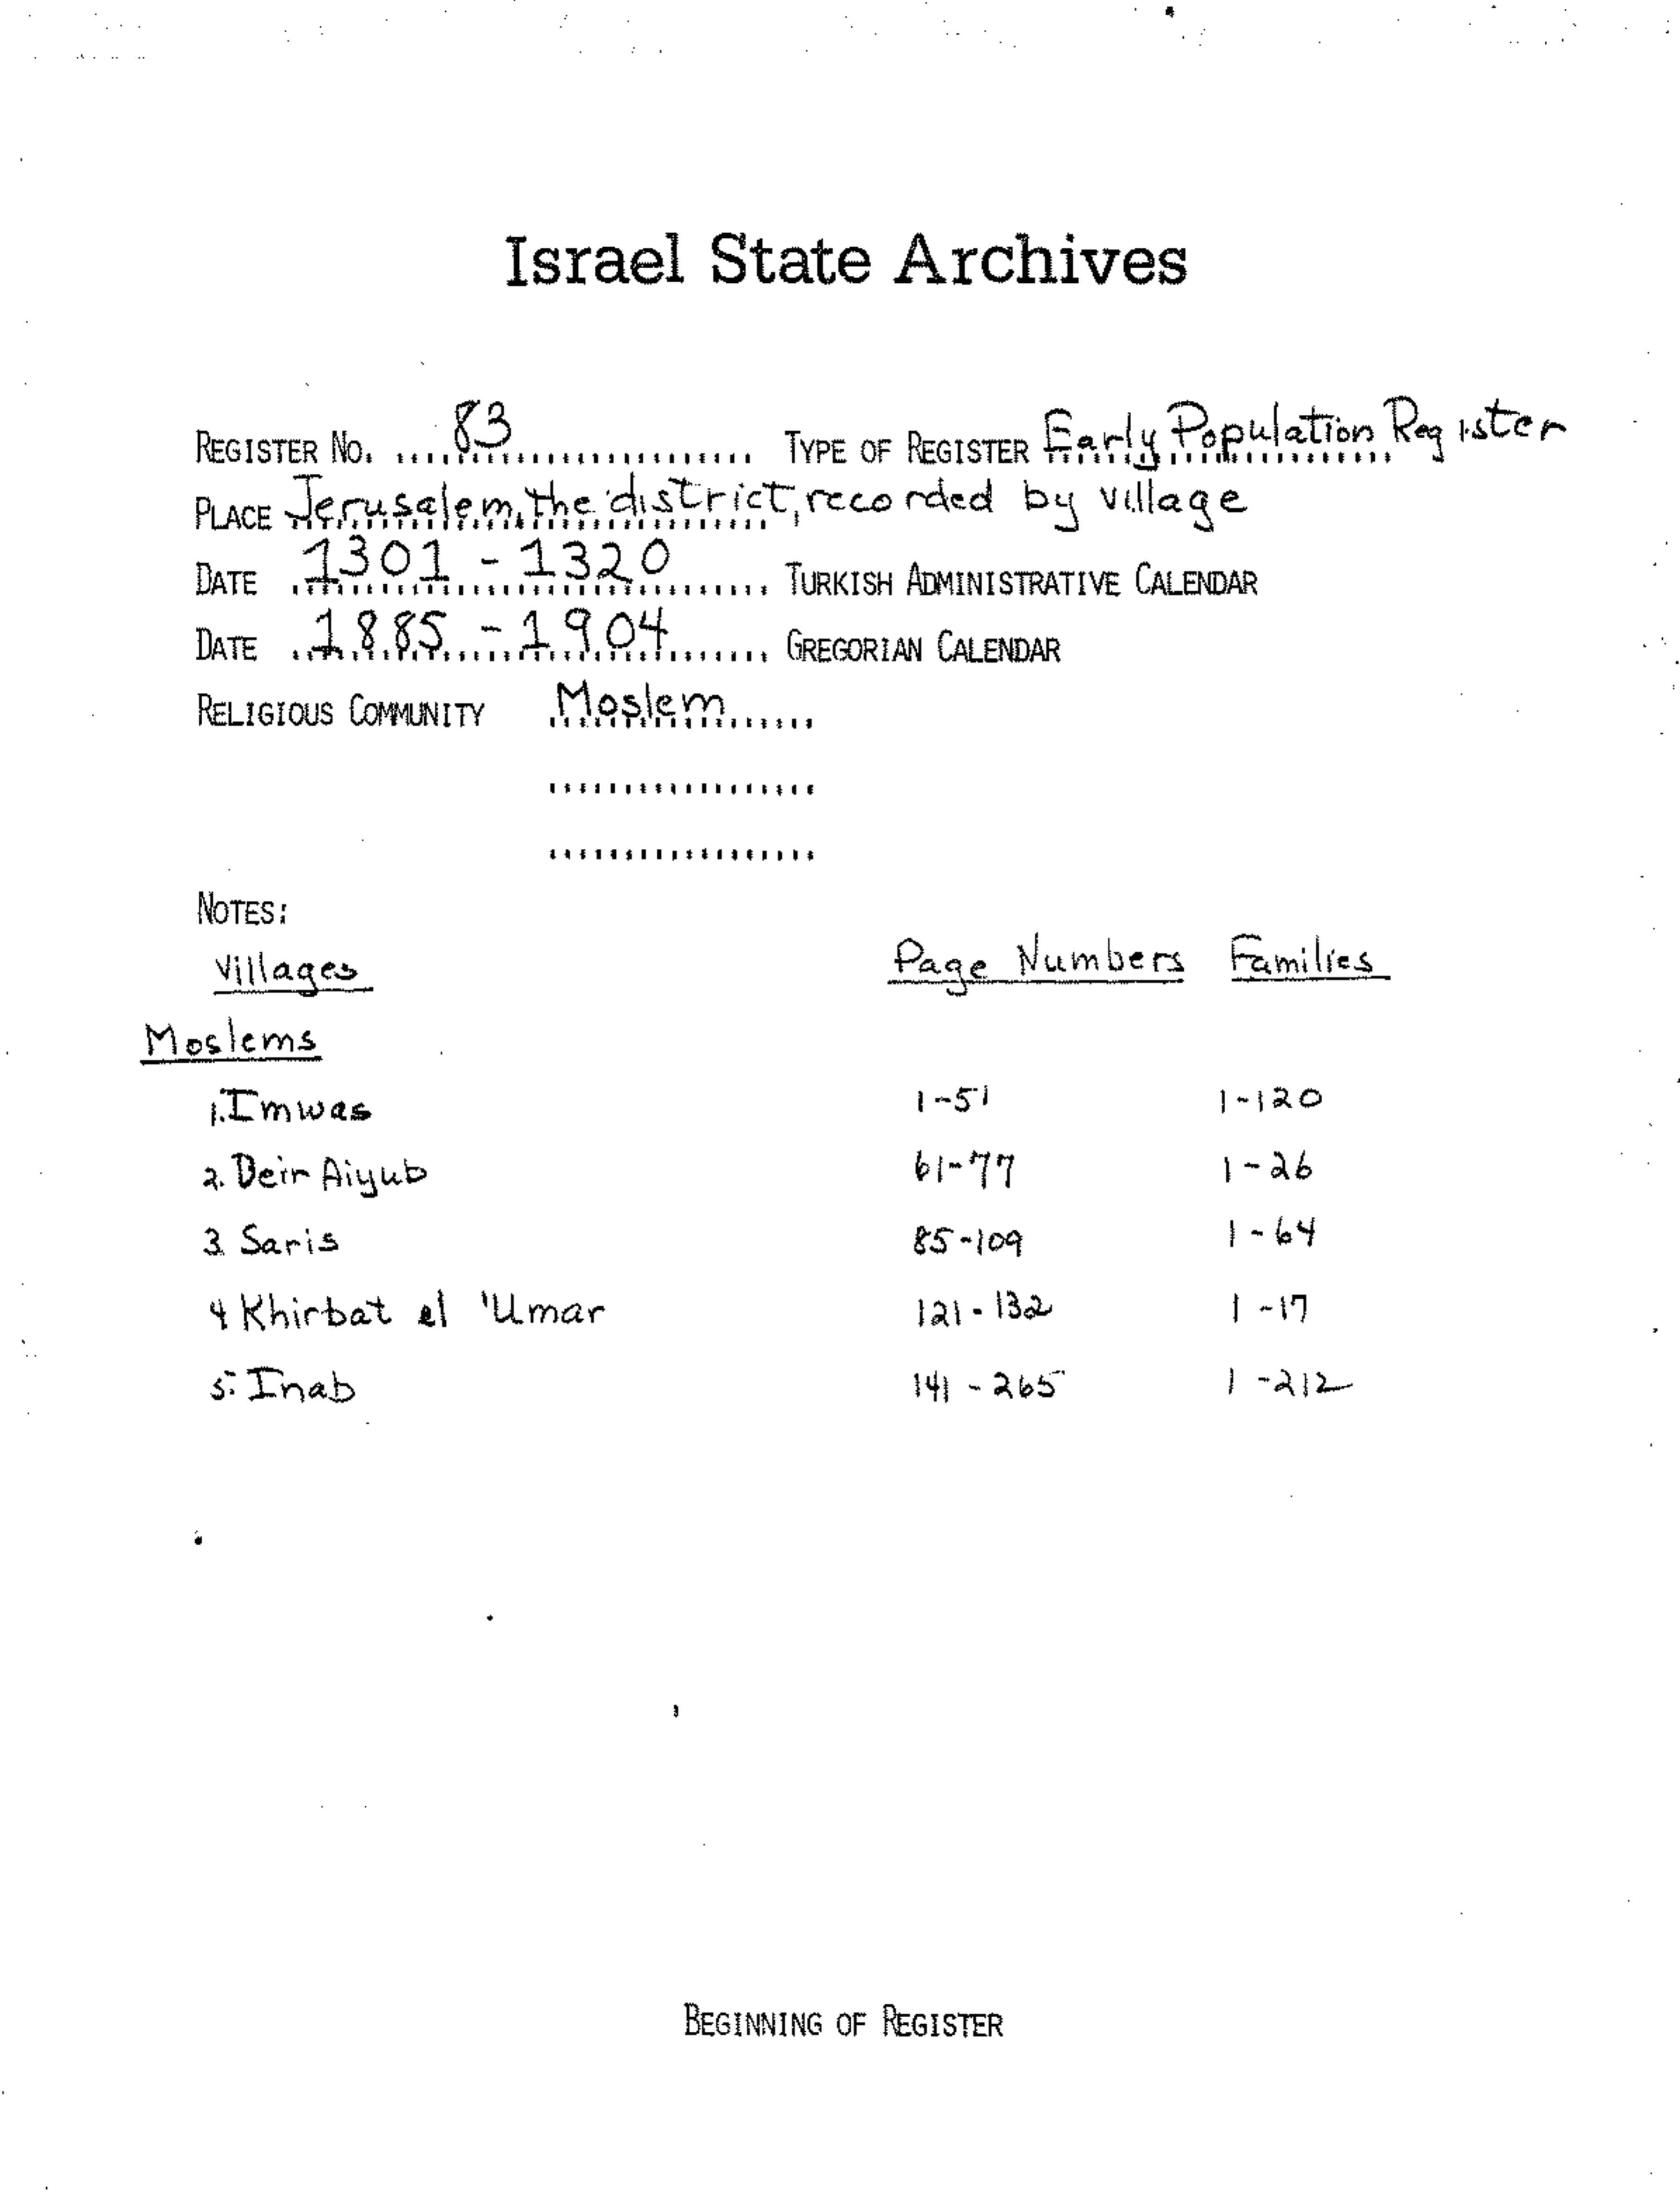 Israel State Archives
REGISTER NO. 83 TYPE OF REGISTER Early Population Register
PLACE Jerusalem, the district, recorded by village
DATE 1301 - 1320 TURKISH ADMINISTRATIVE CALENDAR
DATE 1885 - 1904 GREGORIAN CALENDAR
RELIGIOUS COMMUNITY Moslem
NOTES:
Villages Page Numbers Families
Moslems
1. Imwas 1-51 1-120
2. Deir Aiyub 61-77 1-26
3. Saris 85-109 1-64
4 Khirbat el 'Umar 121-132 1-17
5. Inab 141-265 1-212
BEGINNING OF REGISTER